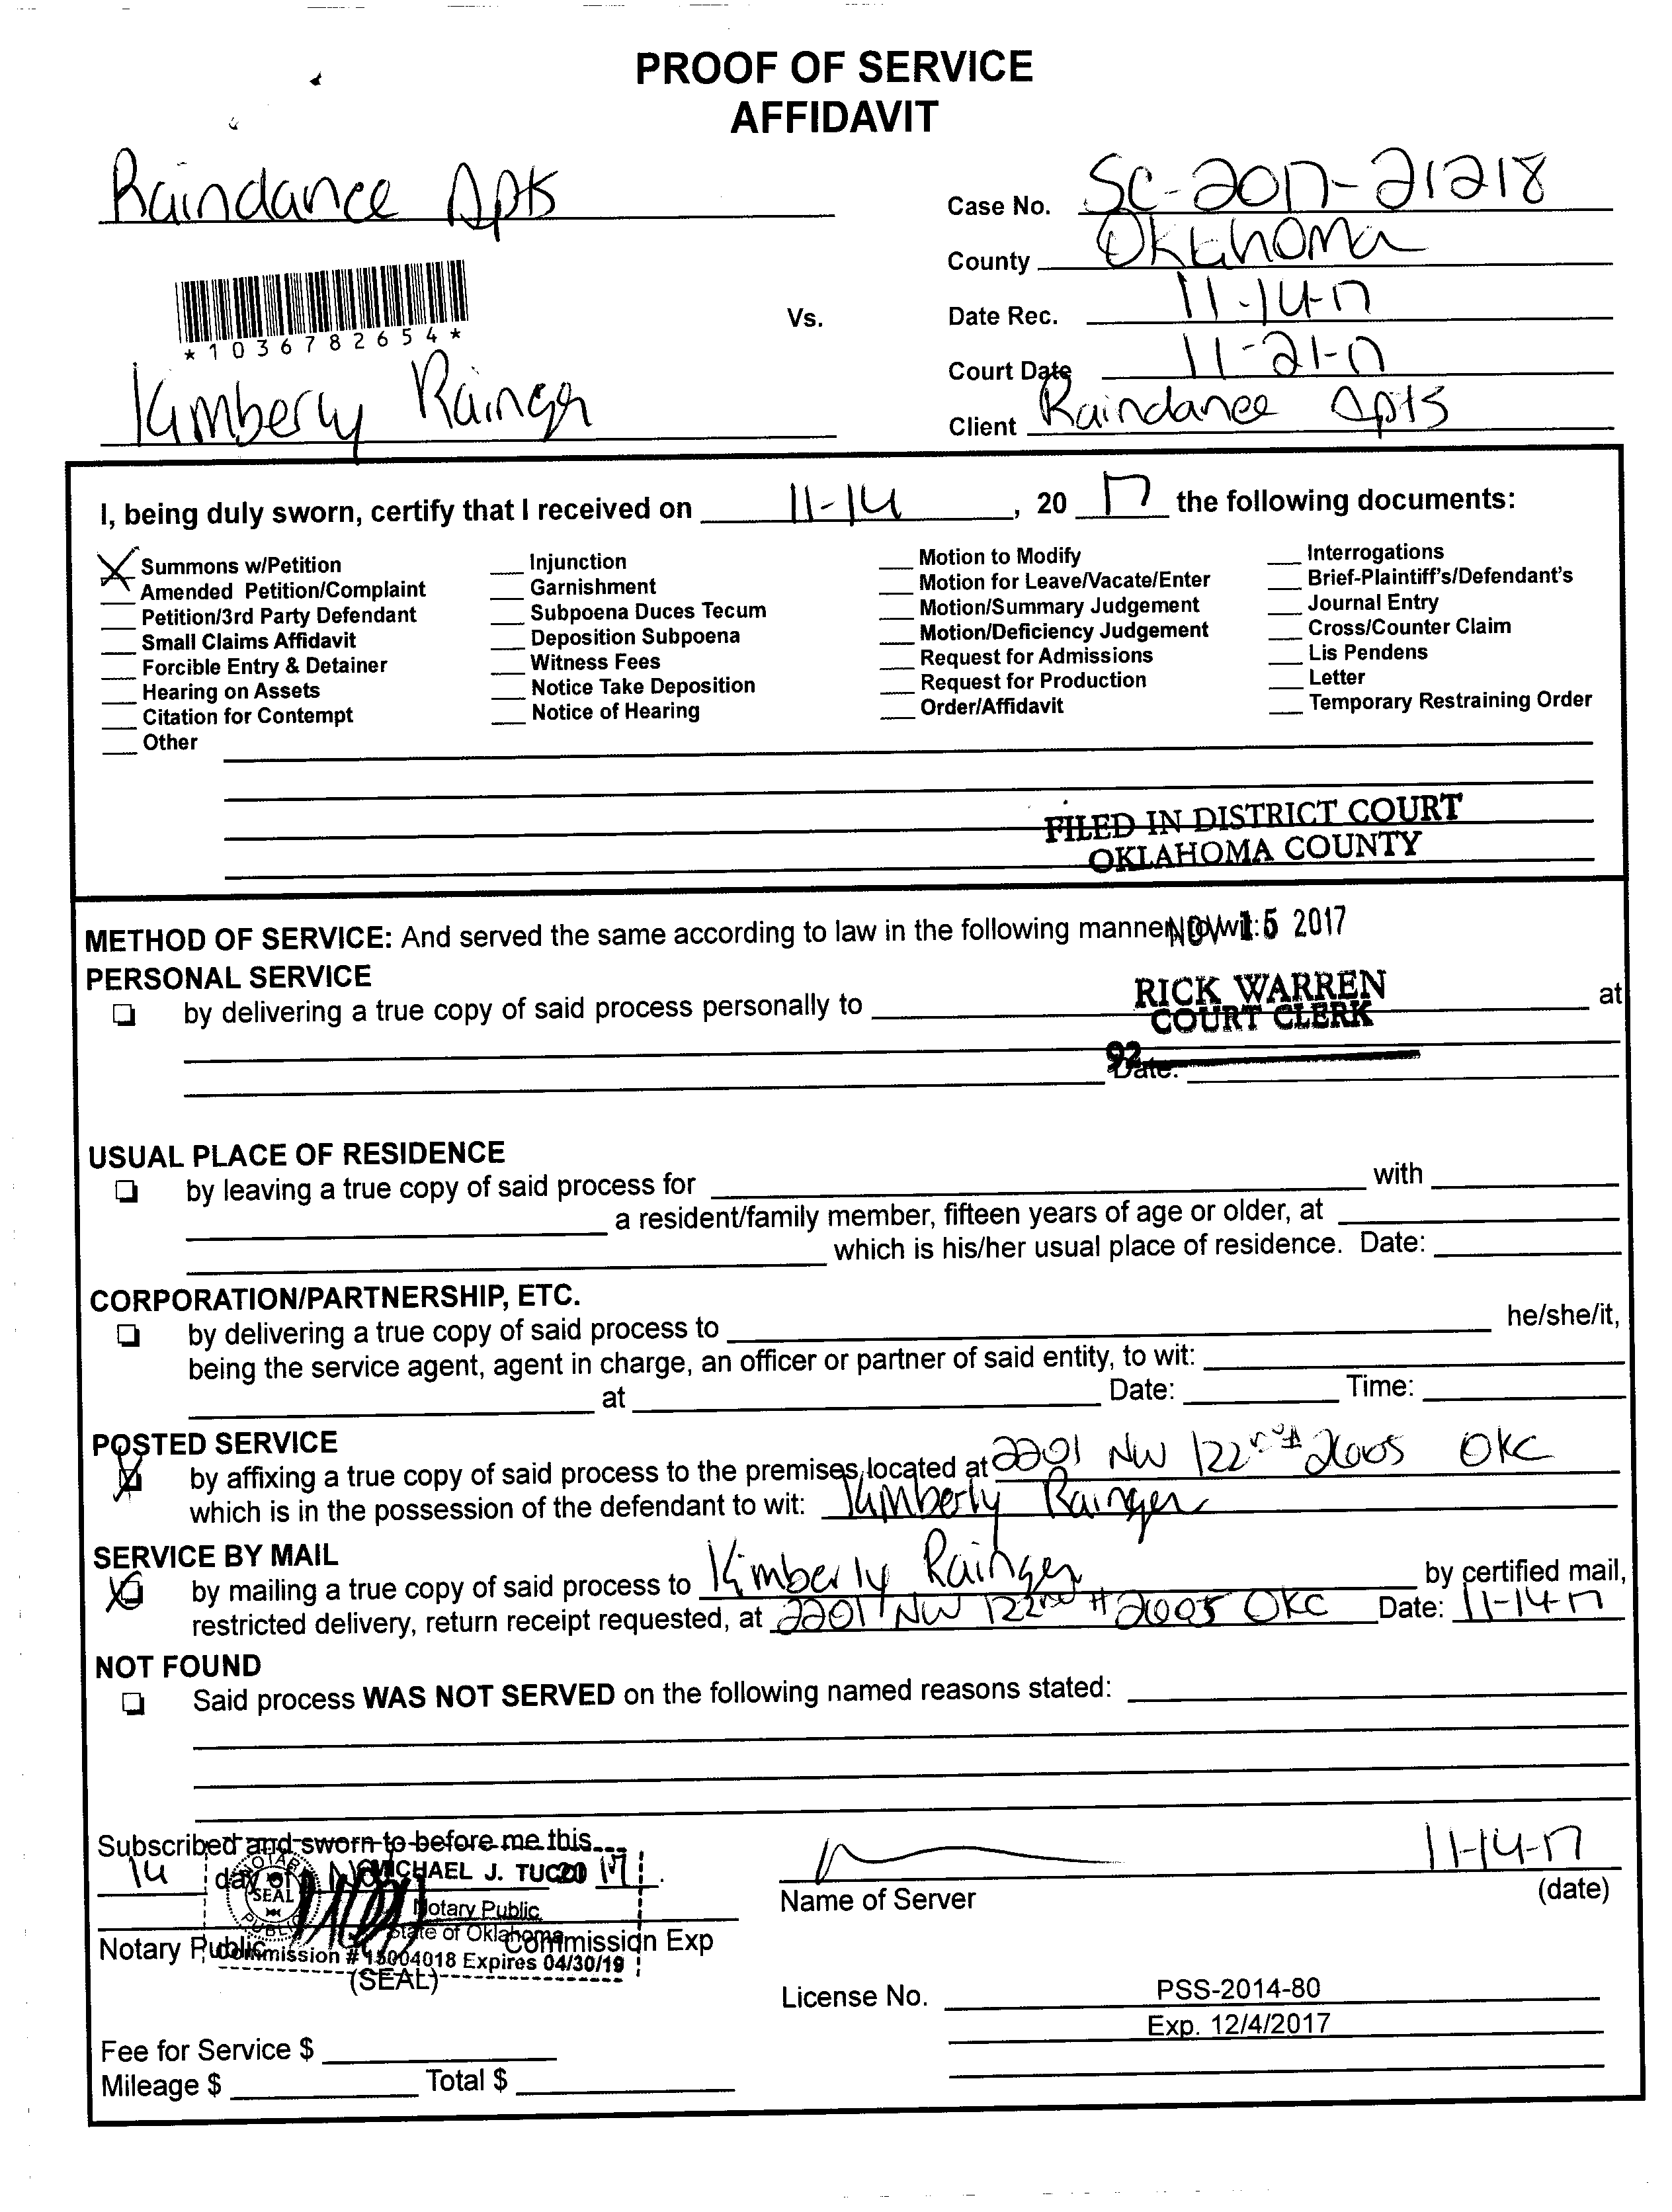 PROOF OF SERVICE
AFFIDAVIT
Raindance Apts
Case No. SC-2017-21218
County Oklahoma
*1036782654*
Vs.
Date Rec. 11-14-17
Court Date 11-21-17
Kimberly Rainger
Client Raindance Apts
I, being duly sworn, certify that I received on 11-14, 20 17 the following documents:
X Summons w/Petition
Amended Petition/Complaint
Petition/3rd Party Defendant
Small Claims Affidavit
Forcible Entry & Detainer
Hearing on Assets
Citation for Contempt
Other
Injunction
Garnishment
Subpoena Duces Tecum
Deposition Subpoena
Witness Fees
Notice Take Deposition
Notice of Hearing
Motion to Modify
Motion for Leave/Vacate/Enter
Motion/Summary Judgement
Motion/Deficiency Judgement
Request for Admissions
Request for Production
Order/Affidavit
Interrogations
Brief-Plaintiff's/Defendant's
Journal Entry
Cross/Counter Claim
Lis Pendens
Letter
Temporary Restraining Order
FILED IN DISTRICT COURT
OKLAHOMA COUNTY
METHOD OF SERVICE: And served the same according to law in the following manner, to wit:
NOV 15 2017
PERSONAL SERVICE
RICK WARREN
COURT CLERK
by delivering a true copy of said process personally to at
92
Date:
USUAL PLACE OF RESIDENCE
by leaving a true copy of said process for with
a resident/family member, fifteen years of age or older, at
which is his/her usual place of residence. Date:
CORPORATION/PARTNERSHIP, ETC.
by delivering a true copy of said process to he/she/it,
being the service agent, agent in charge, an officer or partner of said entity, to wit:
at Date: Time:
POSTED SERVICE
X by affixing a true copy of said process to the premises, located at 2201 NW 122nd # 2005 OKC
which is in the possession of the defendant to wit: Kimberly Rainger
SERVICE BY MAIL
X by mailing a true copy of said process to Kimberly Rainger by certified mail,
restricted delivery, return receipt requested, at 2201 NW 122nd # 2005 OKC Date: 11-14-17
NOT FOUND
Said process WAS NOT SERVED on the following named reasons stated:
Subscribed and sworn to before me this
14 day of Nov 20 17
MICHAEL J. TUCCI
NOTARY PUBLIC
SEAL
Notary Public
State of Oklahoma
Commission # 15004018 Expires 04/30/19
Notary Public Commission Exp
(SEAL)
11-14-17
Name of Server (date)
License No. PSS-2014-80
Exp. 12/4/2017
Fee for Service $
Mileage $ Total $